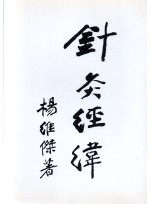 針灸經緯
楊維傑著